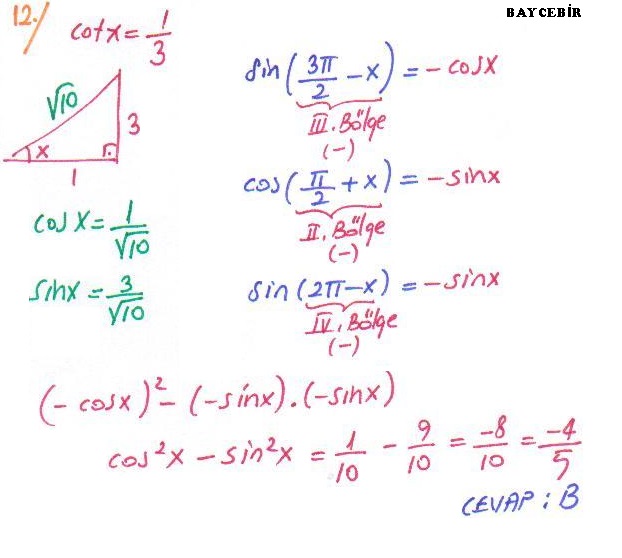 12./ cotx = 1/3
BAYCEBİR
√10
3
x
1
cosx = 1/√10
sinx = 3/√10
sin(3π/2 - x) = - cosx
III. Bölge
(-)
cos(π/2 + x) = - sinx
II. Bölge
(-)
sin(2π-x) = - sinx
IV. Bölge
(-)
(- cosx)² - (-sinx).(-sinx)
cos²x - sin²x = 1/10 - 9/10 = -8/10 = -4/5
CEVAP : B